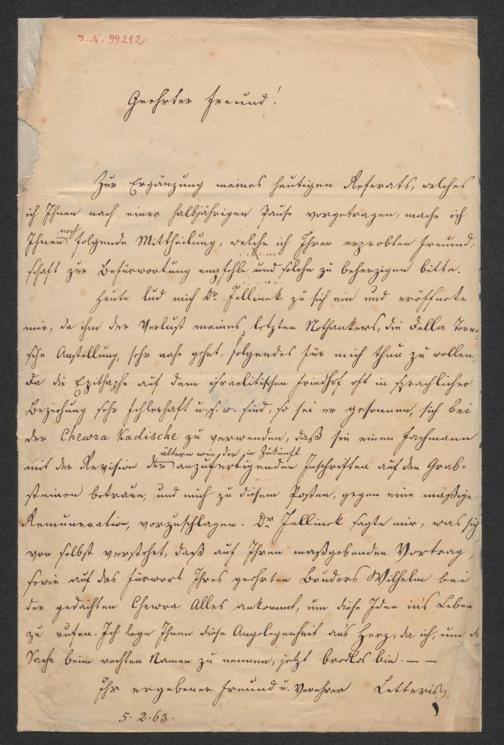 J. N. 99212
Geehrter Freund!
Zur Ergänzung meines heutigen Referats, welches
ich Ihnen nach einer halbjährigen Pause vorgetragen, mache ich
Ihnen noch folgende Mittheilung, welche ich Ihrer erprobten Freund-
schaft zur Befürwortung empfehle und solche zu beherzigen bitte.
Heute lud mich Dr. Jellinek zu sich ein und eröffnete
mir, da ihm der Verlust meines letzten Nothankers, die
Anstellung, sehr nahe gehet, folgendes für mich thun zu wollen.
Da die Epitaphe auf dem israelitischen Friedhof oft in sprachlicher
Beziehung sehr fehlerhaft u.s.w. sind, so sei er gesonnen, sich bei
der Chewra Kadische zu verwenden, daß sie einen Fachmann
mit der Revision der ältern wie der in Zukunft anzufertigenden Inschriften auf den Grab-
steinen betraue, und mich zu diesem Posten, gegen eine mäßige
Remuneration, vorzuschlagen. Dr. Jellinek sagte mir, was sich
von selbst verstehet, daß auf Ihren maßgebenden Vortrag,
sowie auf das Fürwort Ihres geehrten Bruders Wilhelm bei
der gedachten Chewra Alles ankommt, um diese Idee in's Leben
zu rufen. Ich lege Ihnen diese Angelegenheit an's Herz, da ich, um die
Sache beim rechten Namen zu nennen, jetzt brodlos bin. — —
Ihr ergebener Freund u. Verehrer Letteris
5. 2. 63.